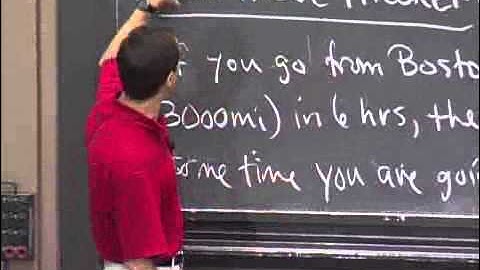 If you go from Bosto
3000mi) in 6 hrs, the
Some time you are goi